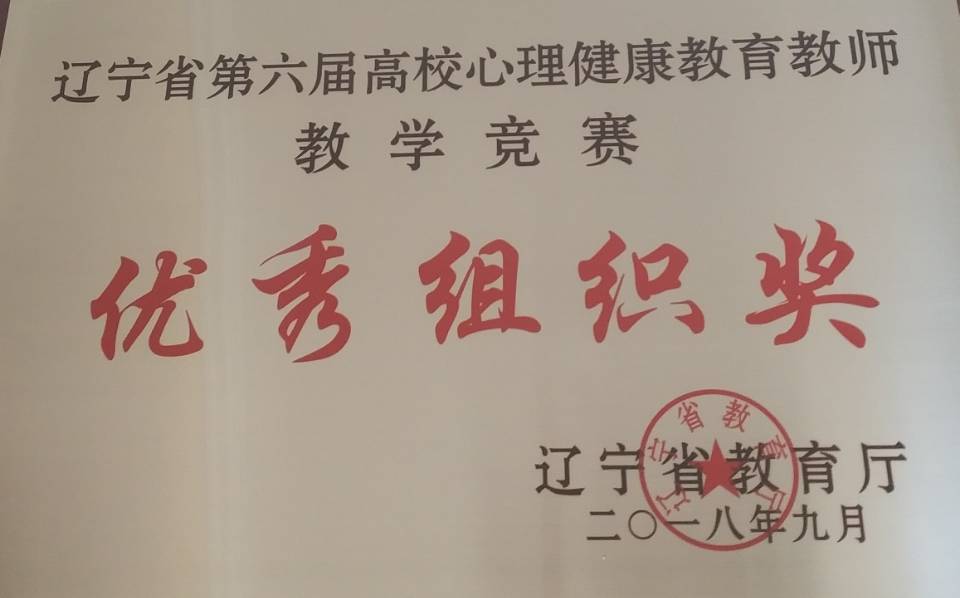 辽宁省第六届高校心理健康教育教师
教学竞赛
优秀组织奖
辽宁省教育厅
辽宁省教育厅
二〇一八年九月